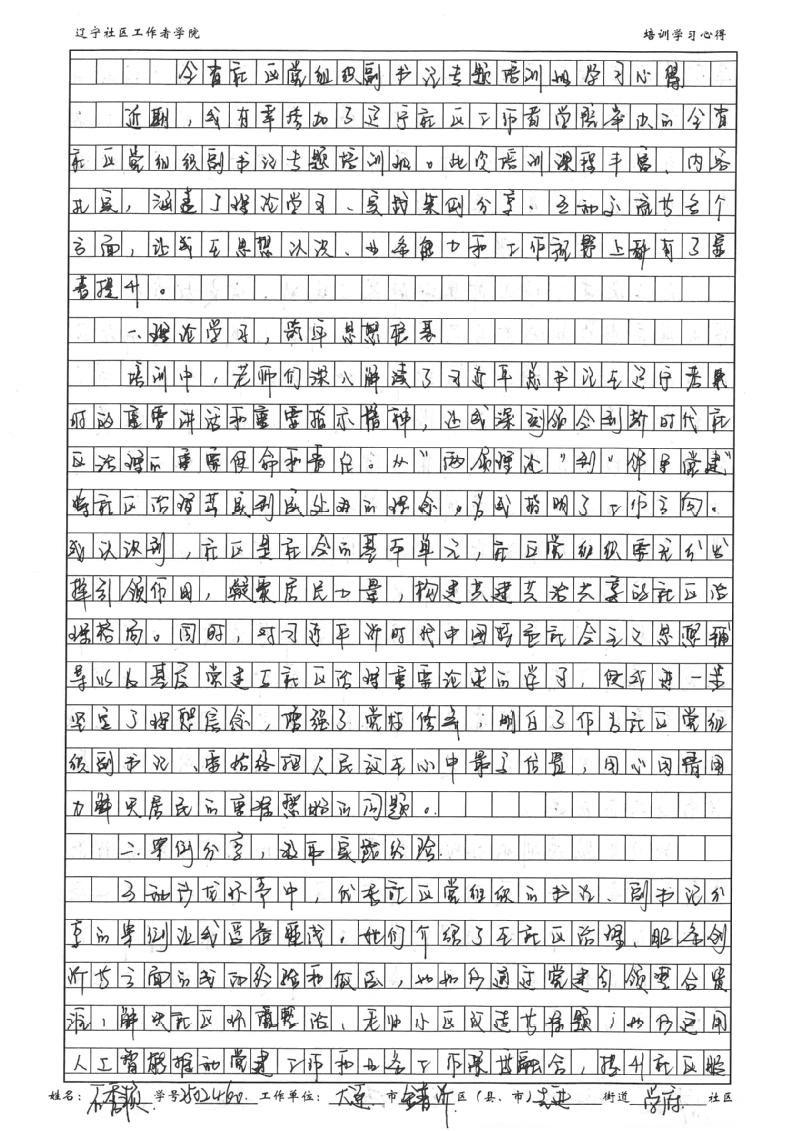 辽宁社区工作者学院 培训学习心得
全省社区党组织副书记专题培训班学习心得
近期，我有幸参加了辽宁社区工作者学院举办的全省
社区党组织副书记专题培训班。此次培训课程丰富、内容
扎实，涵盖了理论学习、实践案例分享、互动交流等多个
方面，让我在思想认识、业务能力和工作视野上都有了显
著提升。
一、理论学习，筑牢思想根基
培训中，老师们深入解读了习近平总书记在辽宁考察
时的重要讲话和重要指示精神，让我深刻领会到新时代社
区治理的重要使命和责任。从“两邻理论”到“邻里党建”
将社区治理落实到民处的理念，为我指明了工作方向。
我认识到，社区是社会的基本单元，社区党组织要充分发
挥引领作用，凝聚居民力量，构建共建共治共享的社区治
理格局。同时，对习近平新时代中国特色社会主义思想辅
导以及基层党建与社区治理重要论述的学习，使我进一步
坚定了理想信念，增强了党性修养；明白了作为社区党组
织副书记、要始终把人民放在心中最高位置，用心用情用
力解决居民的急难愁盼的问题。
二、案例分享，汲取实践经验
互动沙龙环节中，优秀社区党组织的书记、副书记分
享的案例让我受益匪浅。她们介绍了在社区治理、服务创
新等方面的成功经验和做法，比如通过党建引领整合资
源，解决社区环境整治、老旧小区改造等难题；如何运用
人工智能推动党建工作和业务工作深度融合，提升社区服
姓名： 学号 工作单位：大连 市 区（县、市） 街道 学府 社区